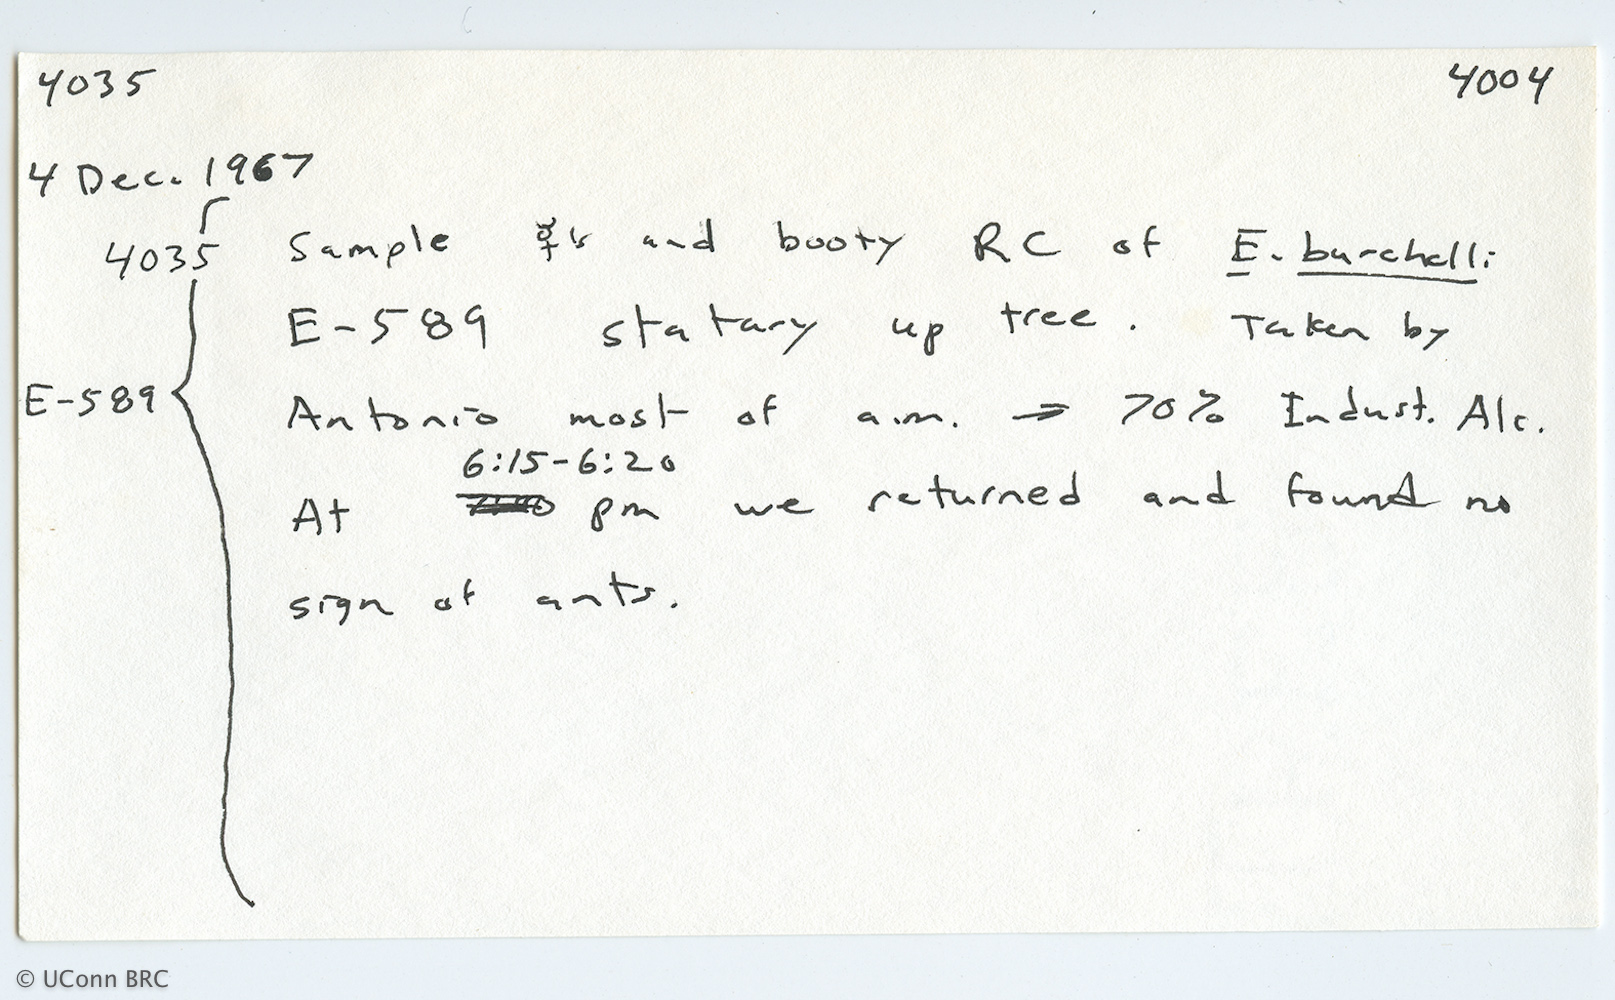 4035 4004
4 Dec. 1967
4035 Sample ☿'s and booty RC of E. burchelli
E-589 statary up tree. Taken by
E-589 Antonio most of a.m. → 70% Indust. Alc.
6:15-6:20
At pm we returned and found no
sign of ants.
© UConn BRC